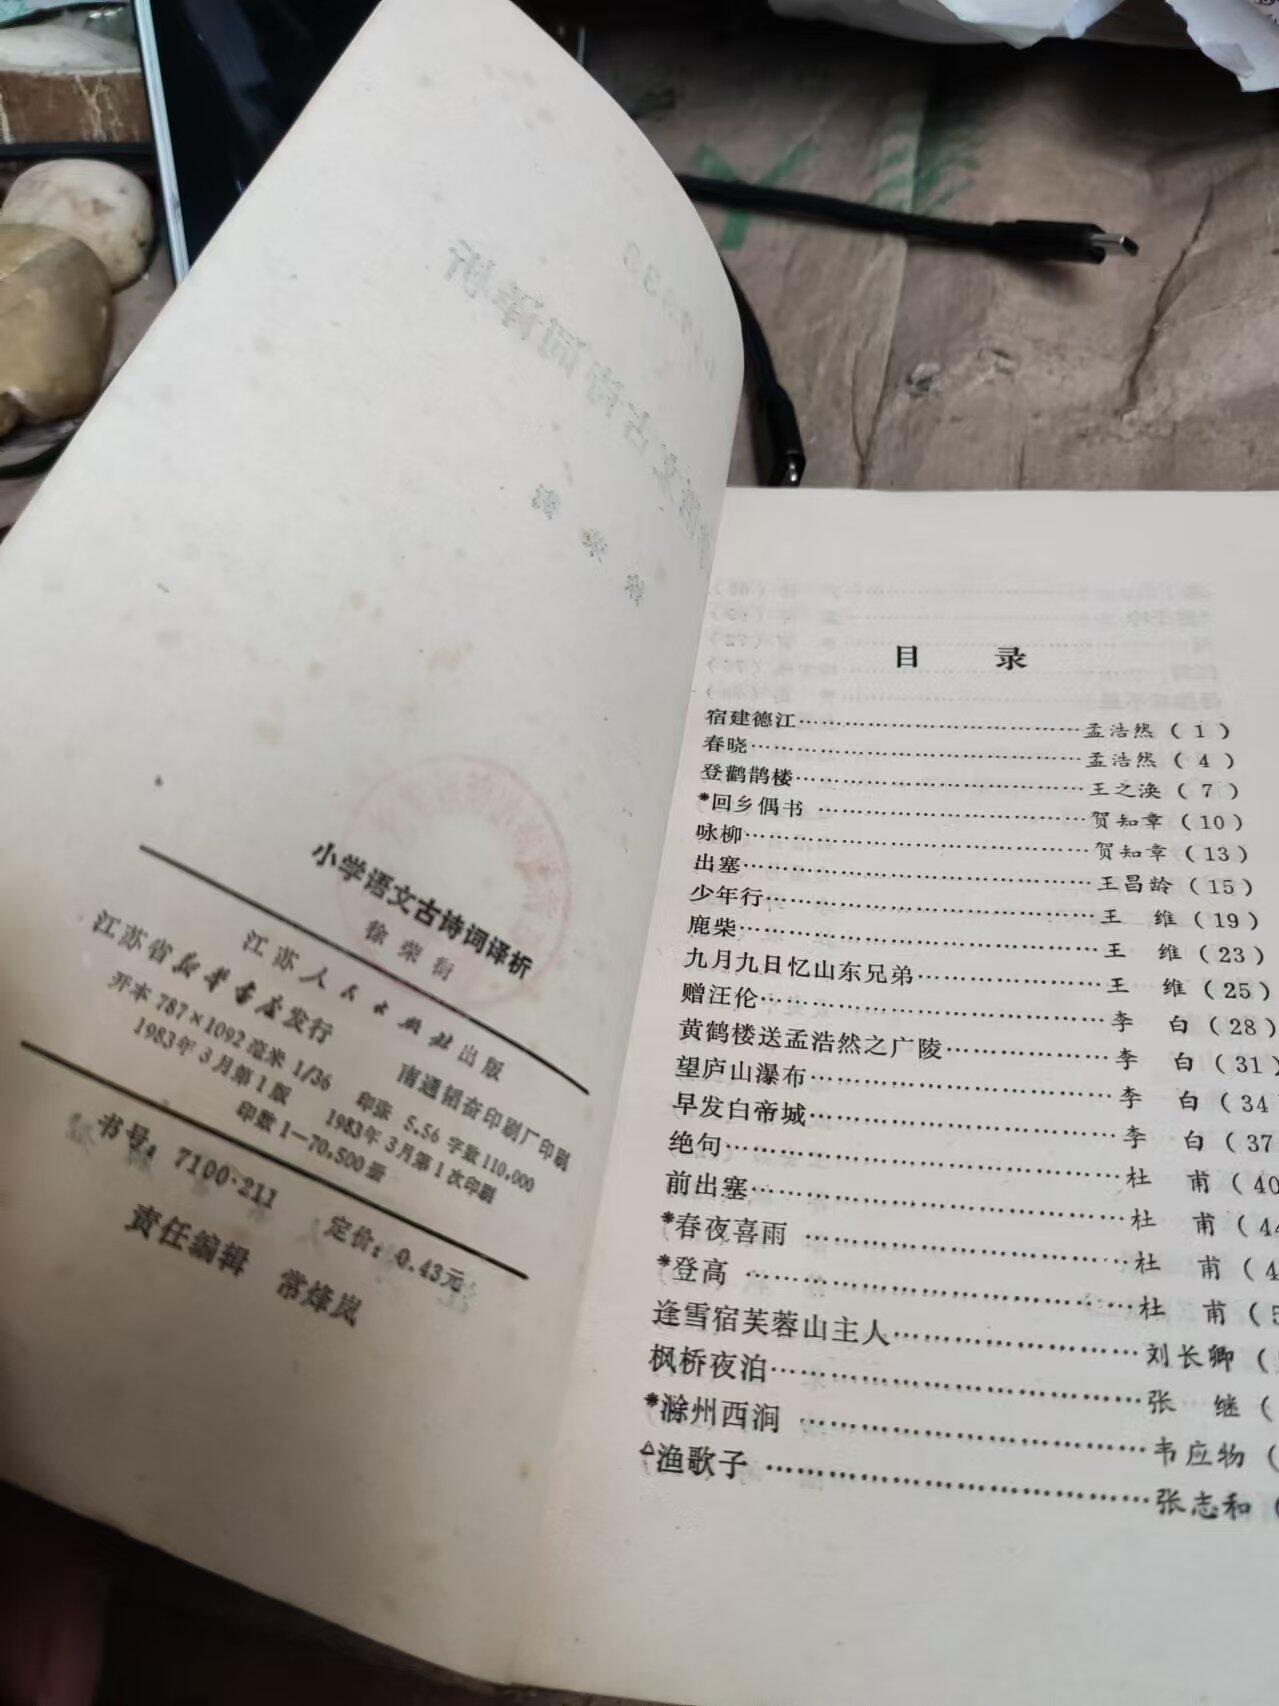 小学语文古诗词译析
徐荣街
江苏人民出版社出版
江苏省新华书店发行 南通韬奋印刷厂印刷
开本 787×1092 毫米 1/36 印张 5.56 字数 110,000
1983年3月第1版 1983年3月第1次印刷
印数 1—70,500册
书号：7100·211 定价：0.43元
责任编辑 常烽岚
目 录
宿建德江………………………………孟浩然（1）
春晓……………………………………孟浩然（4）
登鹳鹊楼………………………………王之涣（7）
*回乡偶书 ……………………………贺知章（10）
咏柳……………………………………贺知章（13）
出塞……………………………………王昌龄（15）
少年行…………………………………王 维（19）
鹿柴……………………………………王 维（23）
九月九日忆山东兄弟…………………王 维（25）
赠汪伦…………………………………李 白（28）
黄鹤楼送孟浩然之广陵………………李 白（31）
望庐山瀑布……………………………李 白（34
早发白帝城……………………………李 白（37
绝句……………………………………杜 甫（40
前出塞…………………………………杜 甫（44
*春夜喜雨 ……………………………杜 甫（4
*登高 …………………………………杜 甫（5
逢雪宿芙蓉山主人……………………刘长卿（
枫桥夜泊………………………………张 继（
*滁州西涧 ……………………………韦应物（
△渔歌子 ………………………………张志和（